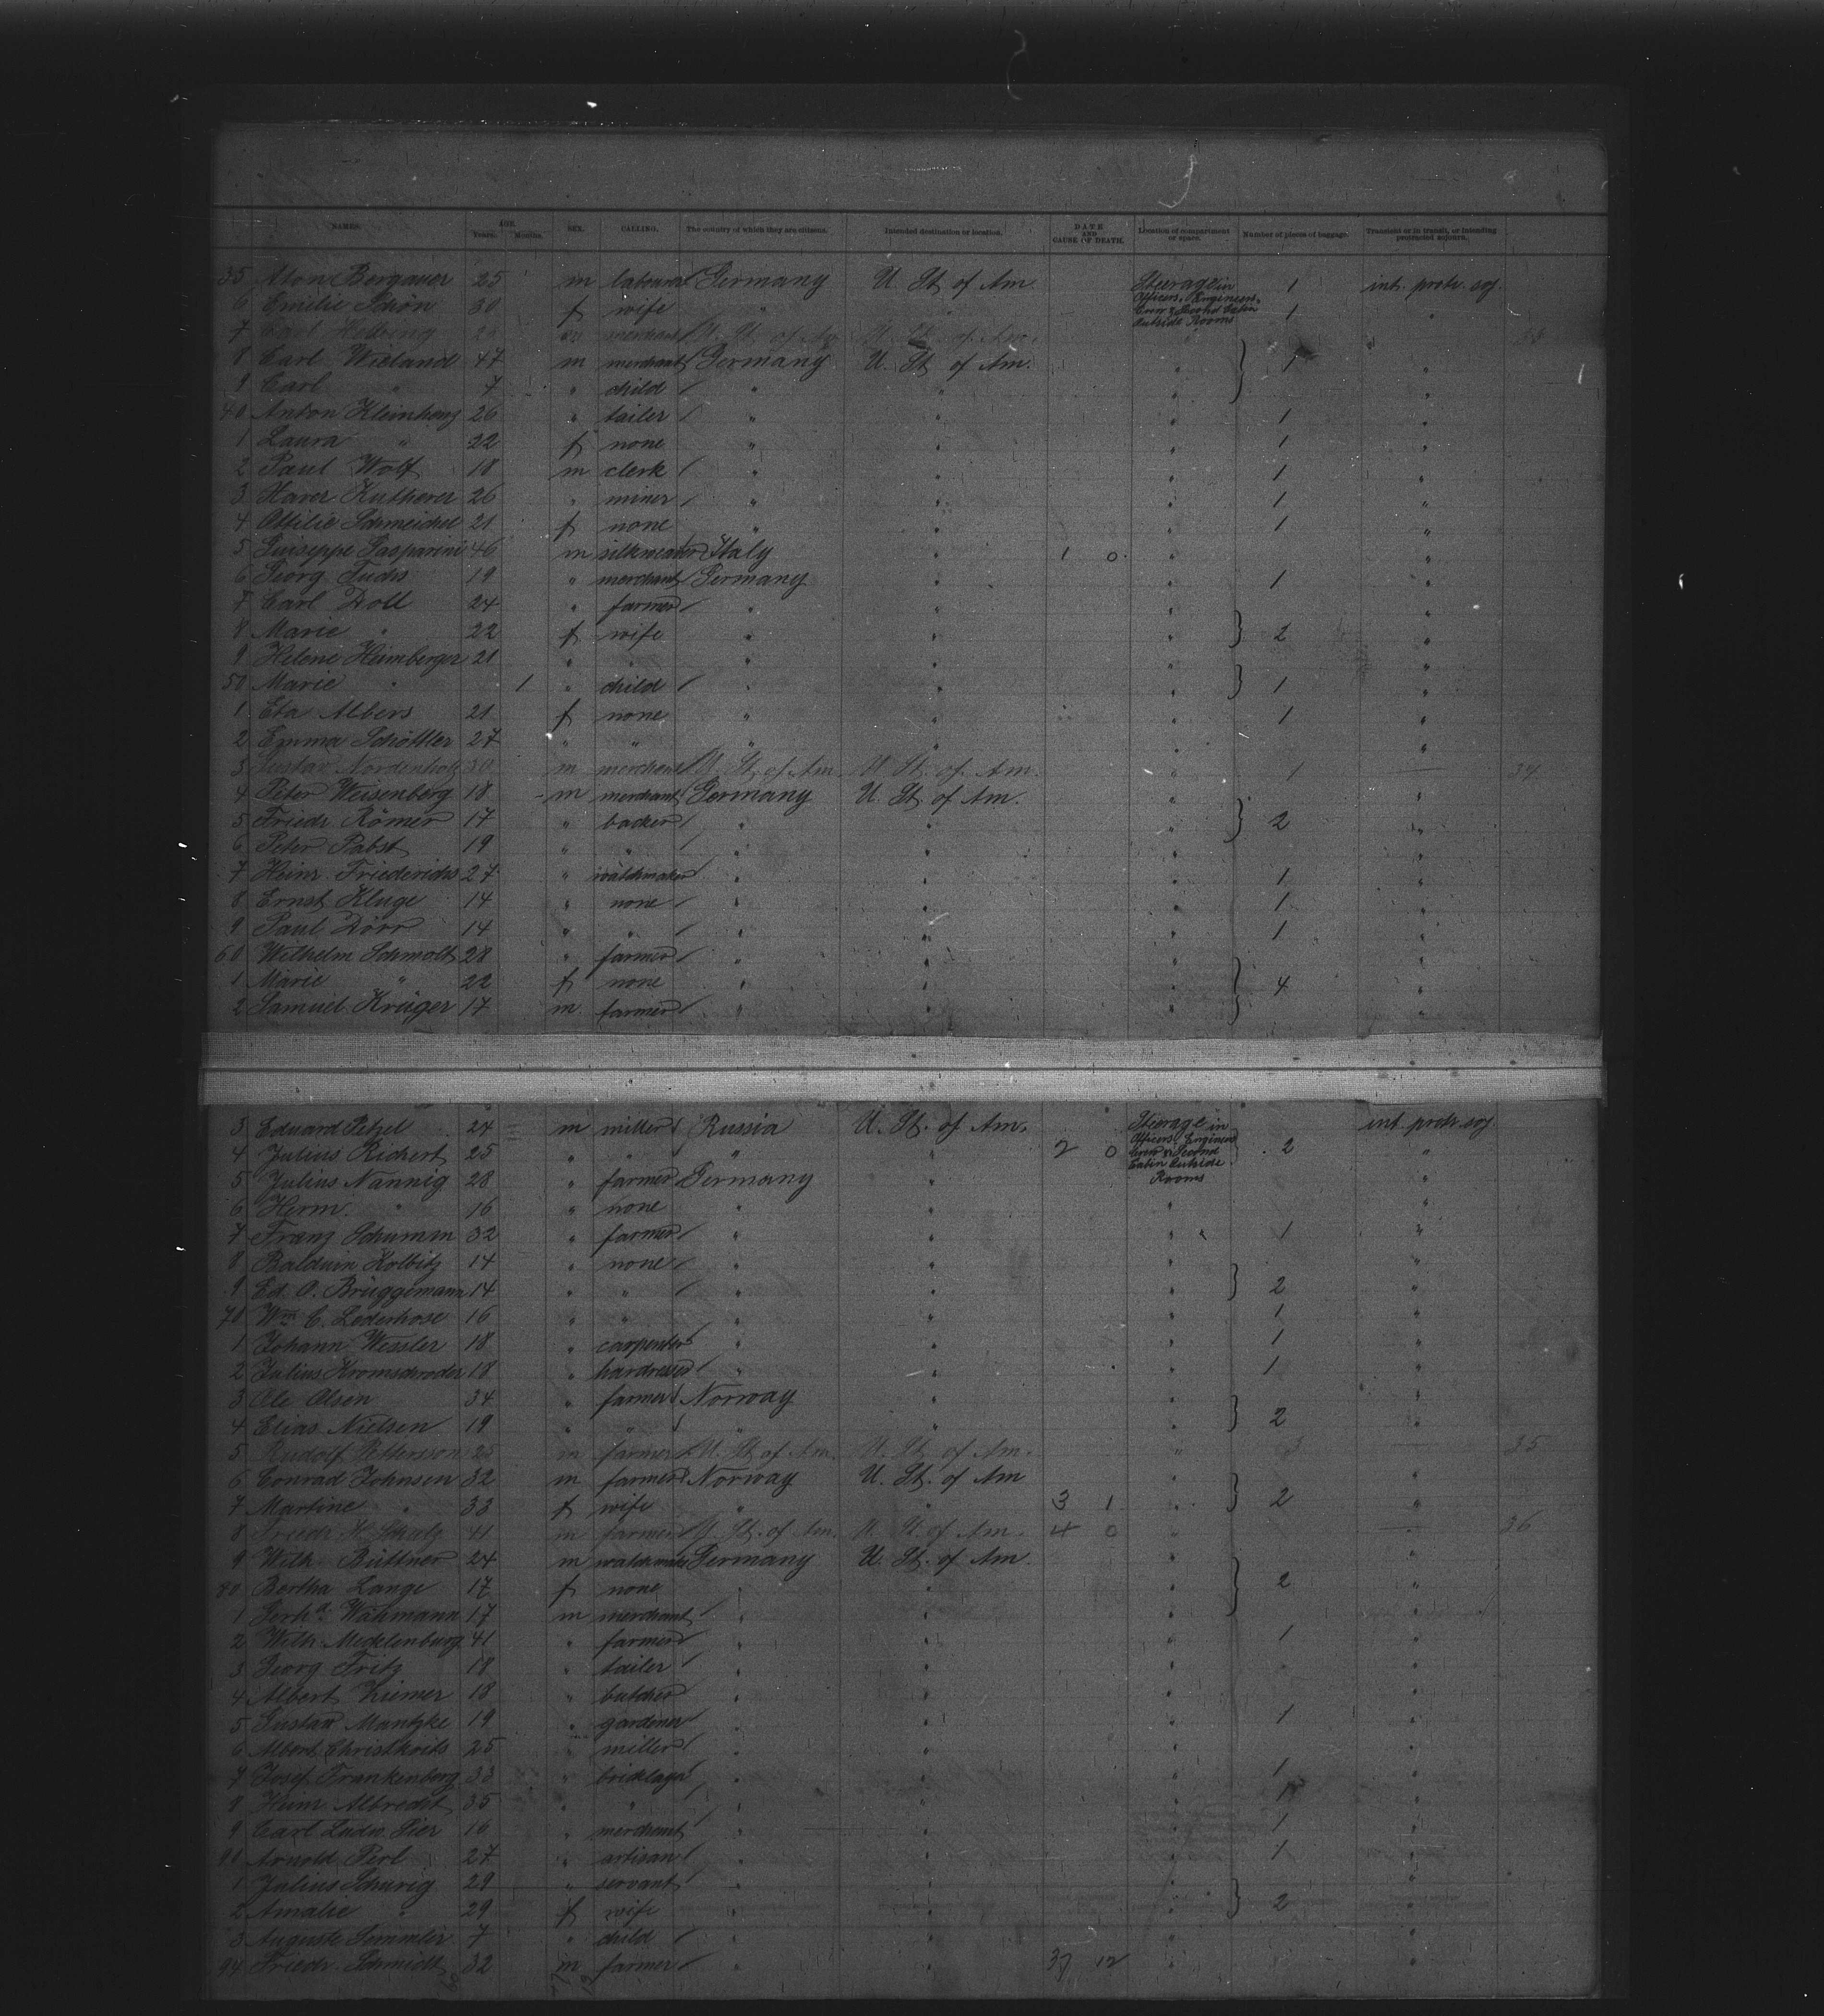 NAMES. AGE. Years. Months. SEX. CALLING. The country of which they are citizens. Intended destination or location. DATE AND CAUSE OF DEATH. Location of compartment or space. Number of pieces of baggage. Transient or in transit, or intending protracted sojourn.
35 Aton Bergauer 25 m labourer Germany U. St. of Am. Steerage in 1 int. protr. soj.
6 Emilie Schön 30 f wife " " Officers, Engineers, Crew & Second Cabin Outside Rooms 1 "
7 Carl Helbing m merchant U. St. of Am. U. St. of Am. "
8 Carl Wieland 47 m merchant Germany U. St. of Am. " 1 "
9 Carl " 7 " child " " " "
40 Anton Kleinhanz 26 " tailer " " " 1 "
1 Laura " 22 f none " " " 1 "
2 Paul Wolf 18 m clerk " " " 1 "
3 Xaver Kutherer 26 " miner " " " 1 "
4 Ottilie Schmeichel 21 f none " " " 1 "
5 Guiseppe Gasparini 46 m silkweaver Italy " 1 0 " "
6 Georg Fuchs 19 " merchant Germany " " 1 "
7 Carl Doll 24 " farmer " " " "
8 Marie " 22 f wife " " " 2 "
9 Helene Heimberger 21 " " " " " "
50 Marie " 1 " child " " " 1 "
1 Eta Albers 21 f none " " " 1 "
2 Emma Schöttler 27 " " " " " "
3 Gustav Nordenholz 30 m merchant U. St. of Am. U. St. of Am. " 1 — 34
4 Peter Weisenberg 18 m merchant Germany U. St. of Am. " "
5 Friedr. Römer 17 " backer " " " 2 "
6 Peter Pabst 19 " " " " " "
7 Heinr. Friederichs 27 " watchmaker " " " 1 "
8 Ernst Kluge 14 " none " " " 1 "
9 Paul Dörr 14 " " " " " 1 "
60 Wilhelm Schmolt 28 " farmer " " " "
1 Marie " 22 f none " " " 4 "
2 Samuel Krüger 17 m farmer " " " "
3 Eduard Petzel 24 m miller Russia U. St. of Am. Steerage in int. protr. soj.
4 Julius Richert 25 " " " " 2 0 Officers, Engineers, Crew & Second 2 "
5 Julius Nannig 28 " farmer Germany " Cabin Outside Rooms "
6 Herm. " 16 " none " " " "
7 Franz Schuman 32 " farmer " " " 1 "
8 Balduin Kolbitz 14 " none " " " "
9 Ed. O. Brüggemann 14 " " " " " 2 "
70 Wm. C. Lederhose 16 " " " " " 1 "
1 Johann Wessler 18 " carpenter " " " 1 "
2 Julius Kromschroder 18 " hardresser " " " 1 "
3 Ole Olsen 34 " farmer Norway " " "
4 Elias Nielsen 19 " " " " " 2 "
5 Rudolf Pettersson 25 m farmer U. St. of Am. U. St. of Am. " 3 — 35
6 Conrad Johnsen 32 m farmer Norway U. St. of Am " "
7 Martine " 33 f wife " " 3 1 " 2 "
8 Friedr. H. Schulz 41 m farmer U. St. of Am. U. St. of Am. 4 0 " — 36
9 Wilh. Büttner 24 m watchmaker Germany U. St. of Am. " "
80 Bertha Lange 17 f none " " " 2 "
1 Gerhd. Wähmann 17 m merchant " " " "
2 Wilh. Mecklenburg 41 " farmer " " " 1 "
3 Georg Fritz 18 " tailer " " " "
4 Albert Kiemer 18 " butcher " " " "
5 Gustav Mantzke 19 " gardener " " " 1 "
6 Albert Christkoits 25 " miller " " " "
7 Josef Frankenberg 33 " " " " 1 "
8 Heinr. Albrecht 35 " " " " " 1 "
9 Carl Ludw. Sier 16 " merchant " " " 1 "
Arnold Perl 27 " artisan " " " 1 "
1 Julius Schurig 29 " servant " " " "
2 Amalie " 29 f wife " " " 2 "
3 Auguste Semmler 7 " child " " " "
94 Friedr. Schmidt 32 m farmer " " 37 12 " "